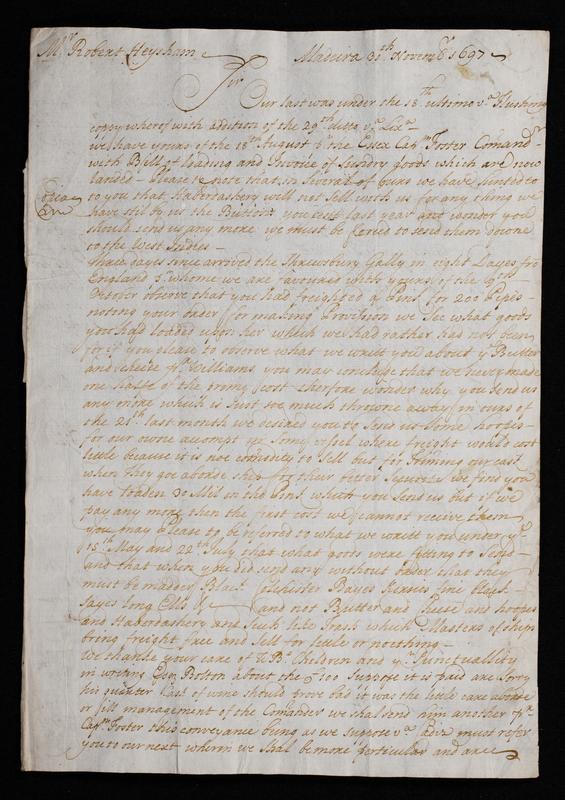 Mr Robert Heysham Madeira 30th Novemr 1697
Sir
Our last was under the 18th ultimo va Flushing
coppy whereof with addition of the 29th ditto va Lixa
we have yours of the 18th August pr the Essex Capn Foster Comandr
with Bill of loading and Invoice of sundry goods which are now
landed Please to note that in severall of ours we have hinted
to you that Haberdashery will not sell with us for any thing we
have still by us the Buttons you sent last year and wonder you
should send us any more we must be forced to send them downe
to the West Indies
three dayes since arrived the Shrewsbury Gally in eight Dayes fro
England pr whome we are favoured with yours of the 9th
October observe that you had freighted ye Pink for 200 Pipes
noting your order for making Provision we see what goods
you had loaded upon her which we had rather had not been
for if you please to observe what we writt you about ye Butter
and cheize pr Williams, you may conclude that we never made
one halfe of the prime cost therfore wonder why you send us
any more which is Just soe much throwne away in ours of
the 21th last month we desired you to send us some hoopes
for our owne accompt pr some where freight would cost
little because it is not to sell but for triming our cask
when they goe aborde ship for their better security we find you
have loaden 30 Mil in the Pink which you send us but if we
pay any more then the first cost we cannot receive them
you may Please to be referred to what we writt you under ye
15th May and 22th July that what goods were fitting to Send
and that when you did send any without order that they
must be madder Black Colchester Bayes Kersies fine
sayes long Ells &c and not Butter and cheese and hoopes
and Haberdashery and such like trash which Masters of ships
bring freight free and sell for little or noething
We thanke your care of Children and yr Punctuallity
in writing Bolton about the £100 suppose it is paid are sorry
his quarter Cask of wine should prove bad it was the little care aborde
or ill management of the Comander we shall send him another pr
Capn Foster this conveyance being as we supose va must refer
you to our next wherin we shal be more perticular and are